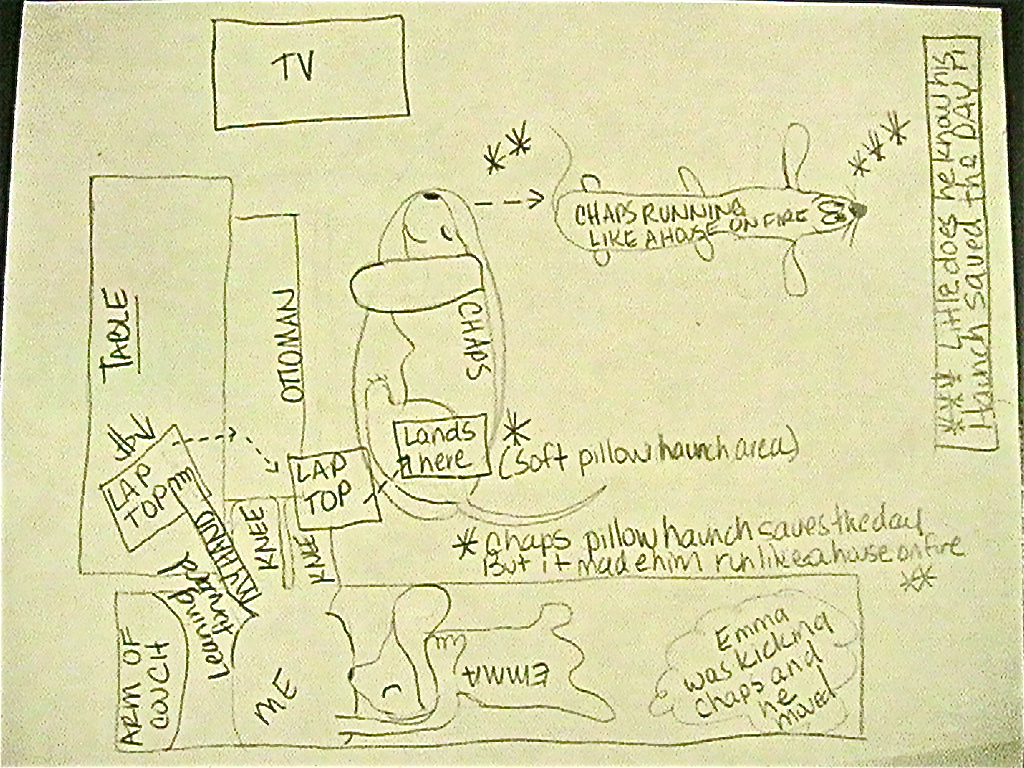 TV
**
CHAPS RUNNING
LIKE A HOUSE ON FIRE
***
*** Little does he know his
Haunch saved the DAY
TABLE
OTTOMAN
CHAPS
LAP
TOP
LAP
TOP
Lands
here
*
(Soft pillow haunch area)
MY HAND
Leaning
forward
KNEE
KNEE
* Chaps pillow haunch saves the day
But it made him run like a house on fire
**
ARM OF
COUCH
ME
EMMA
Emma
was kicking
Chaps and
he
moved